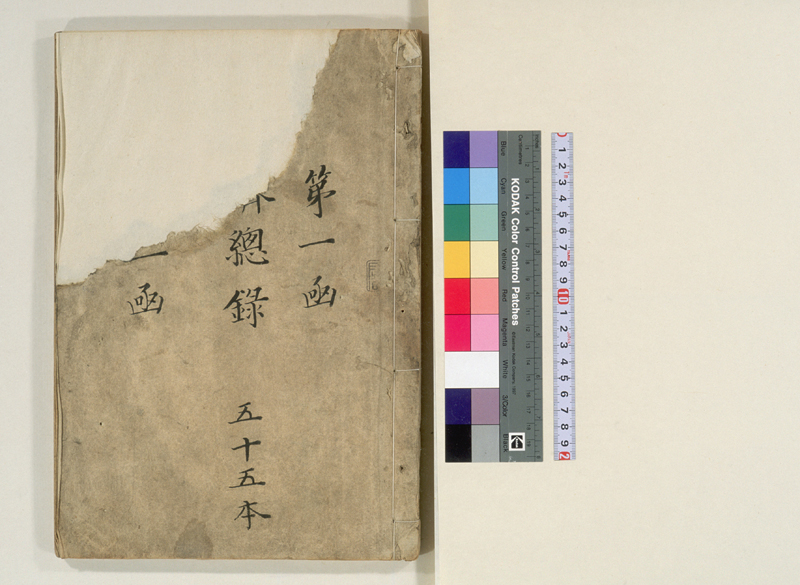 第一函
總錄 五十五本
一函
KODAK Color Control Patches
Blue Cyan Green Yellow Red Magenta White 3/Color Black
Centimetres
1 2 3 4 5 6 7 8 9 10 1 2 3 4 5 6 7 8 9 2